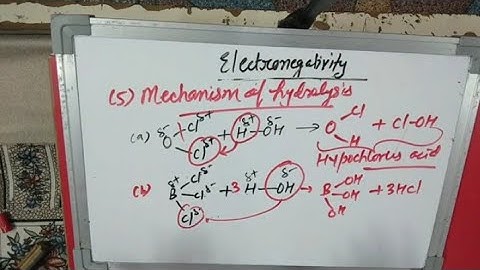 Electronegativity
(5) Mechanism of hydrolysis
(a) δ- O Cl δ+ Cl δ+ + δ+ H - δ- OH → O Cl H + Cl-OH
Hypochlorus acid
(b) δ+ B Cl δ- Cl δ- Cl δ- + 3 δ+ H - δ- OH → B OH OH OH + 3HCl